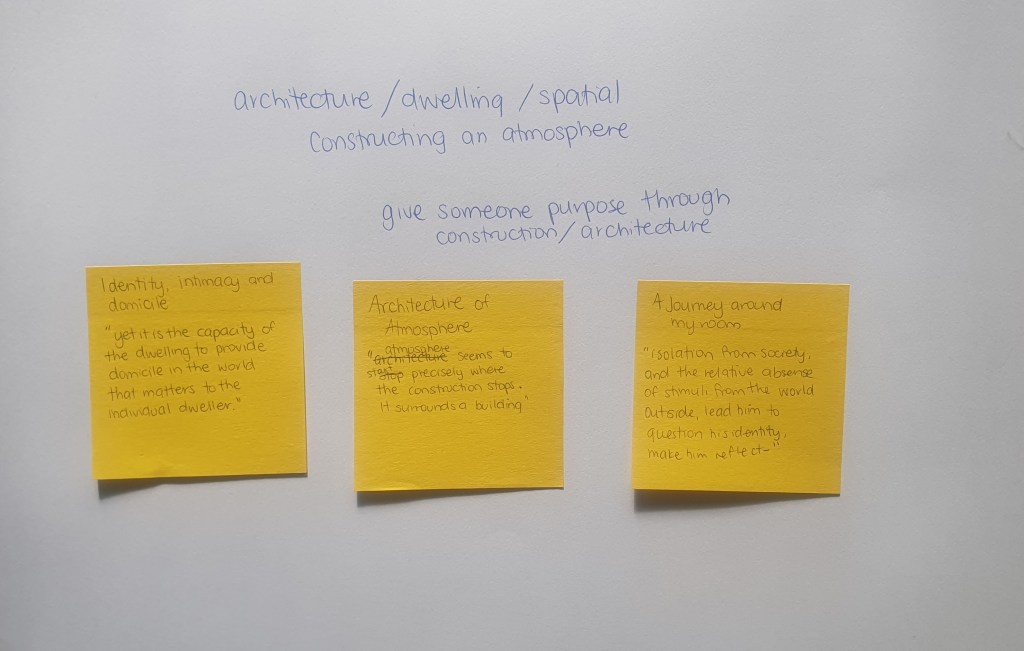 architecture / dwelling / spatial
Constructing an atmosphere
give someone purpose through
construction / architecture
Identity, intimacy and
domicile
"yet it is the capacity of
the dwelling to provide
domicile in the world
that matters to the
individual dweller."
Architecture of
Atmosphere
atmosphere
"architecture seems to
stop precisely where
the construction stops.
It surrounds a building"
A Journey around
my room
"isolation from society,
and the relative absense
of stimuli from the world
outside, lead him to
question his identity,
make him reflect-"